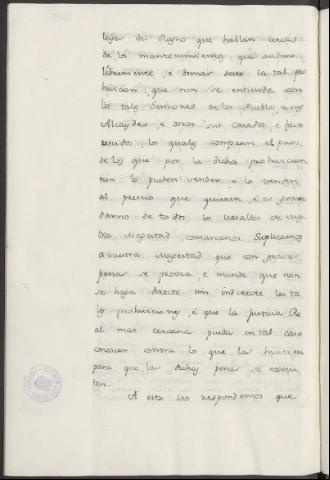 leyes del Reyno que hablan cerca
de los mantenimientos que anden
libremente, è demas desto la tal pro
hivicion, que non se entiende con
los tales Sennores de los Pueblos, sus
Alcaydes, è otros sus criados, è favo
recidos, los quales compran el pan,
de los que por la dicha prohivicion
non lo pueden vender, è lo venden
al precio que quieren, è es grave
danno de todos los vasallos de vues
tra Magestad comarcanos. Suplicamos
a vuestra Magestad que con graves
penas se provea, è mande que non
se haga directe nin indirecte las ta
les prohiviciones, è que la Justicia Re
al mas cercana pueda en tal caso
conocer contra los que la hicieren
para que las dichas penas se execu
ten.
A esto vos respondemos que